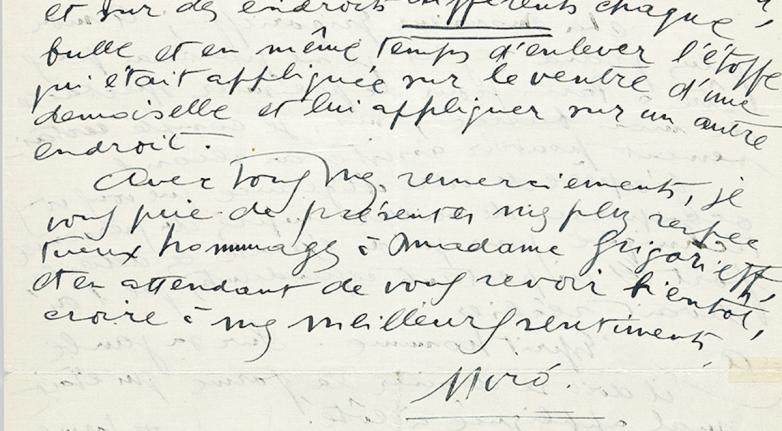 et sur des endroits différents chaque
bulle et en même temps d'enlever l'étoffe
qui était appliquée sur le ventre d'une
demoiselle et lui appliquer sur un autre
endroit.
Avec tous mes remerciements, je
vous prie de présenter mes plus respec
tueux hommages à Madame Grigorieff,
et en attendant de vous revoir bientôt,
croire à mes meilleurs sentiments,
Miró.